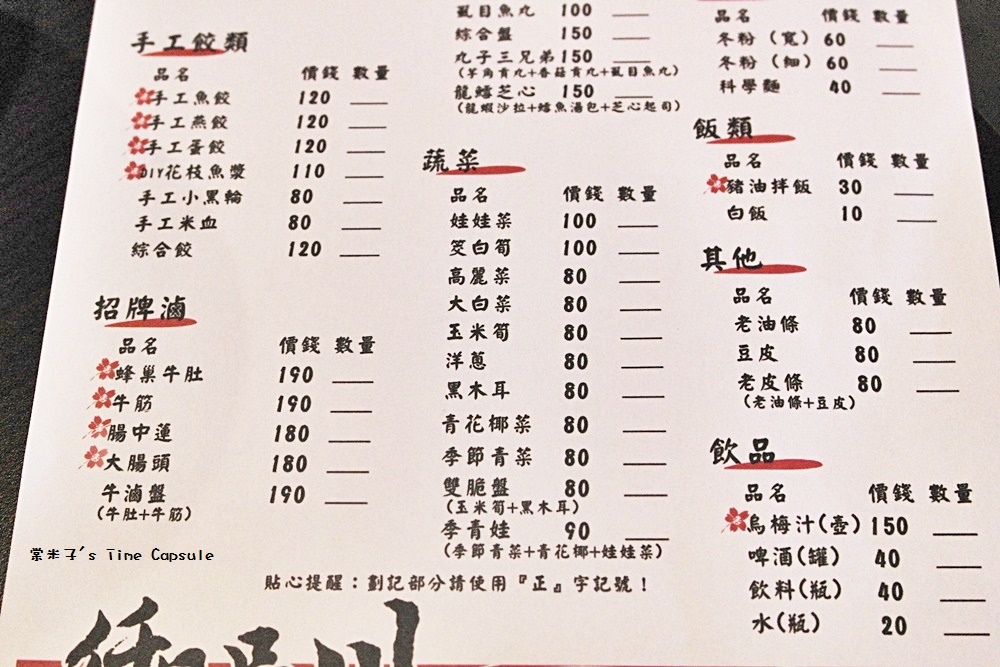 手工餃類
品名 價錢 數量
手工魚餃 120
手工燕餃 120
手工蛋餃 120
DIY花枝魚漿 110
手工小黑輪 80
手工米血 80
綜合餃 120
招牌滷
品名 價錢 數量
蜂巢牛肚 190
牛筋 190
腸中蓮 180
大腸頭 180
牛滷盤 190
(牛肚+牛筋)
虱目魚丸 100
綜合盤 150
丸子三兄弟 150
(羊角貢丸+香菇貢丸+虱目魚丸)
龍鱈芝心 150
(龍蝦沙拉+鱈魚湯包+芝心起司)
蔬菜
品名 價錢 數量
娃娃菜 100
筊白筍 100
高麗菜 80
大白菜 80
玉米筍 80
洋蔥 80
黑木耳 80
青花椰菜 80
季節青菜 80
雙脆盤 80
(玉米筍+黑木耳)
季青娃 90
(季節青菜+青花椰+娃娃菜)
品名 價錢 數量
冬粉(寬) 60
冬粉(細) 60
科學麵 40
飯類
品名 價錢 數量
豬油拌飯 30
白飯 10
其他
品名 價錢 數量
老油條 80
豆皮 80
老皮條 80
(老油條+豆皮)
飲品
品名 價錢 數量
烏梅汁(壺) 150
啤酒(罐) 40
飲料(瓶) 40
水(瓶) 20
貼心提醒:劃記部分請使用『正』字記號!
棠米子's Time Capsule